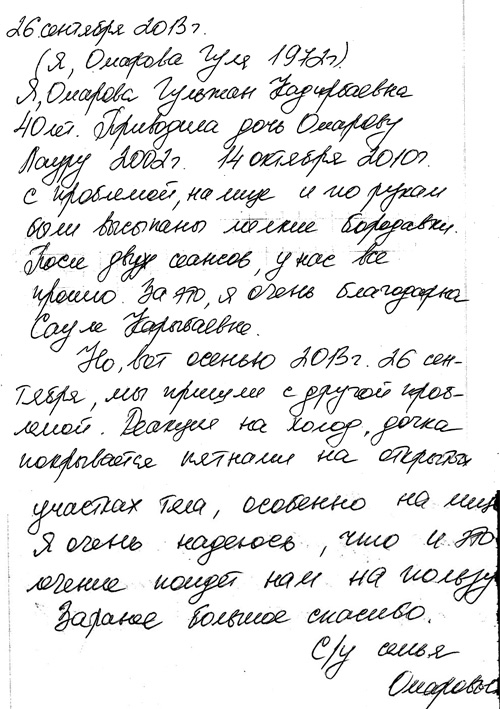 26 сентября 2013 г.
(Я, Омарова Гуля 1972г.)
Я, Омарова Гульжан Кадирбаевна
40 лет. Приводила дочь Омарову
Лауру 2002г. 14 октября 2010г.
с проблемой, на лице и по рукам
были высыпаны мелкие бородавки.
После двух сеансов, у нас все
прошло. За это, я очень благодарна
Сауле Карыбаевне.
Но, вот осенью 2013г. 26 сен-
тября, мы пришли с другой проб-
лемой. Реакция на холод, дочка
покрывается пятнами на открытых
участках тела, особенно на лице
Я очень надеюсь, что и это
лечение пойдёт нам на пользу
Заранее большое спасибо.
С/у семья
Омаровых